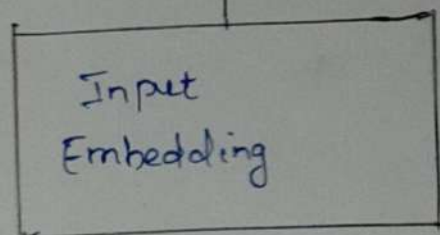 Input
Embedding